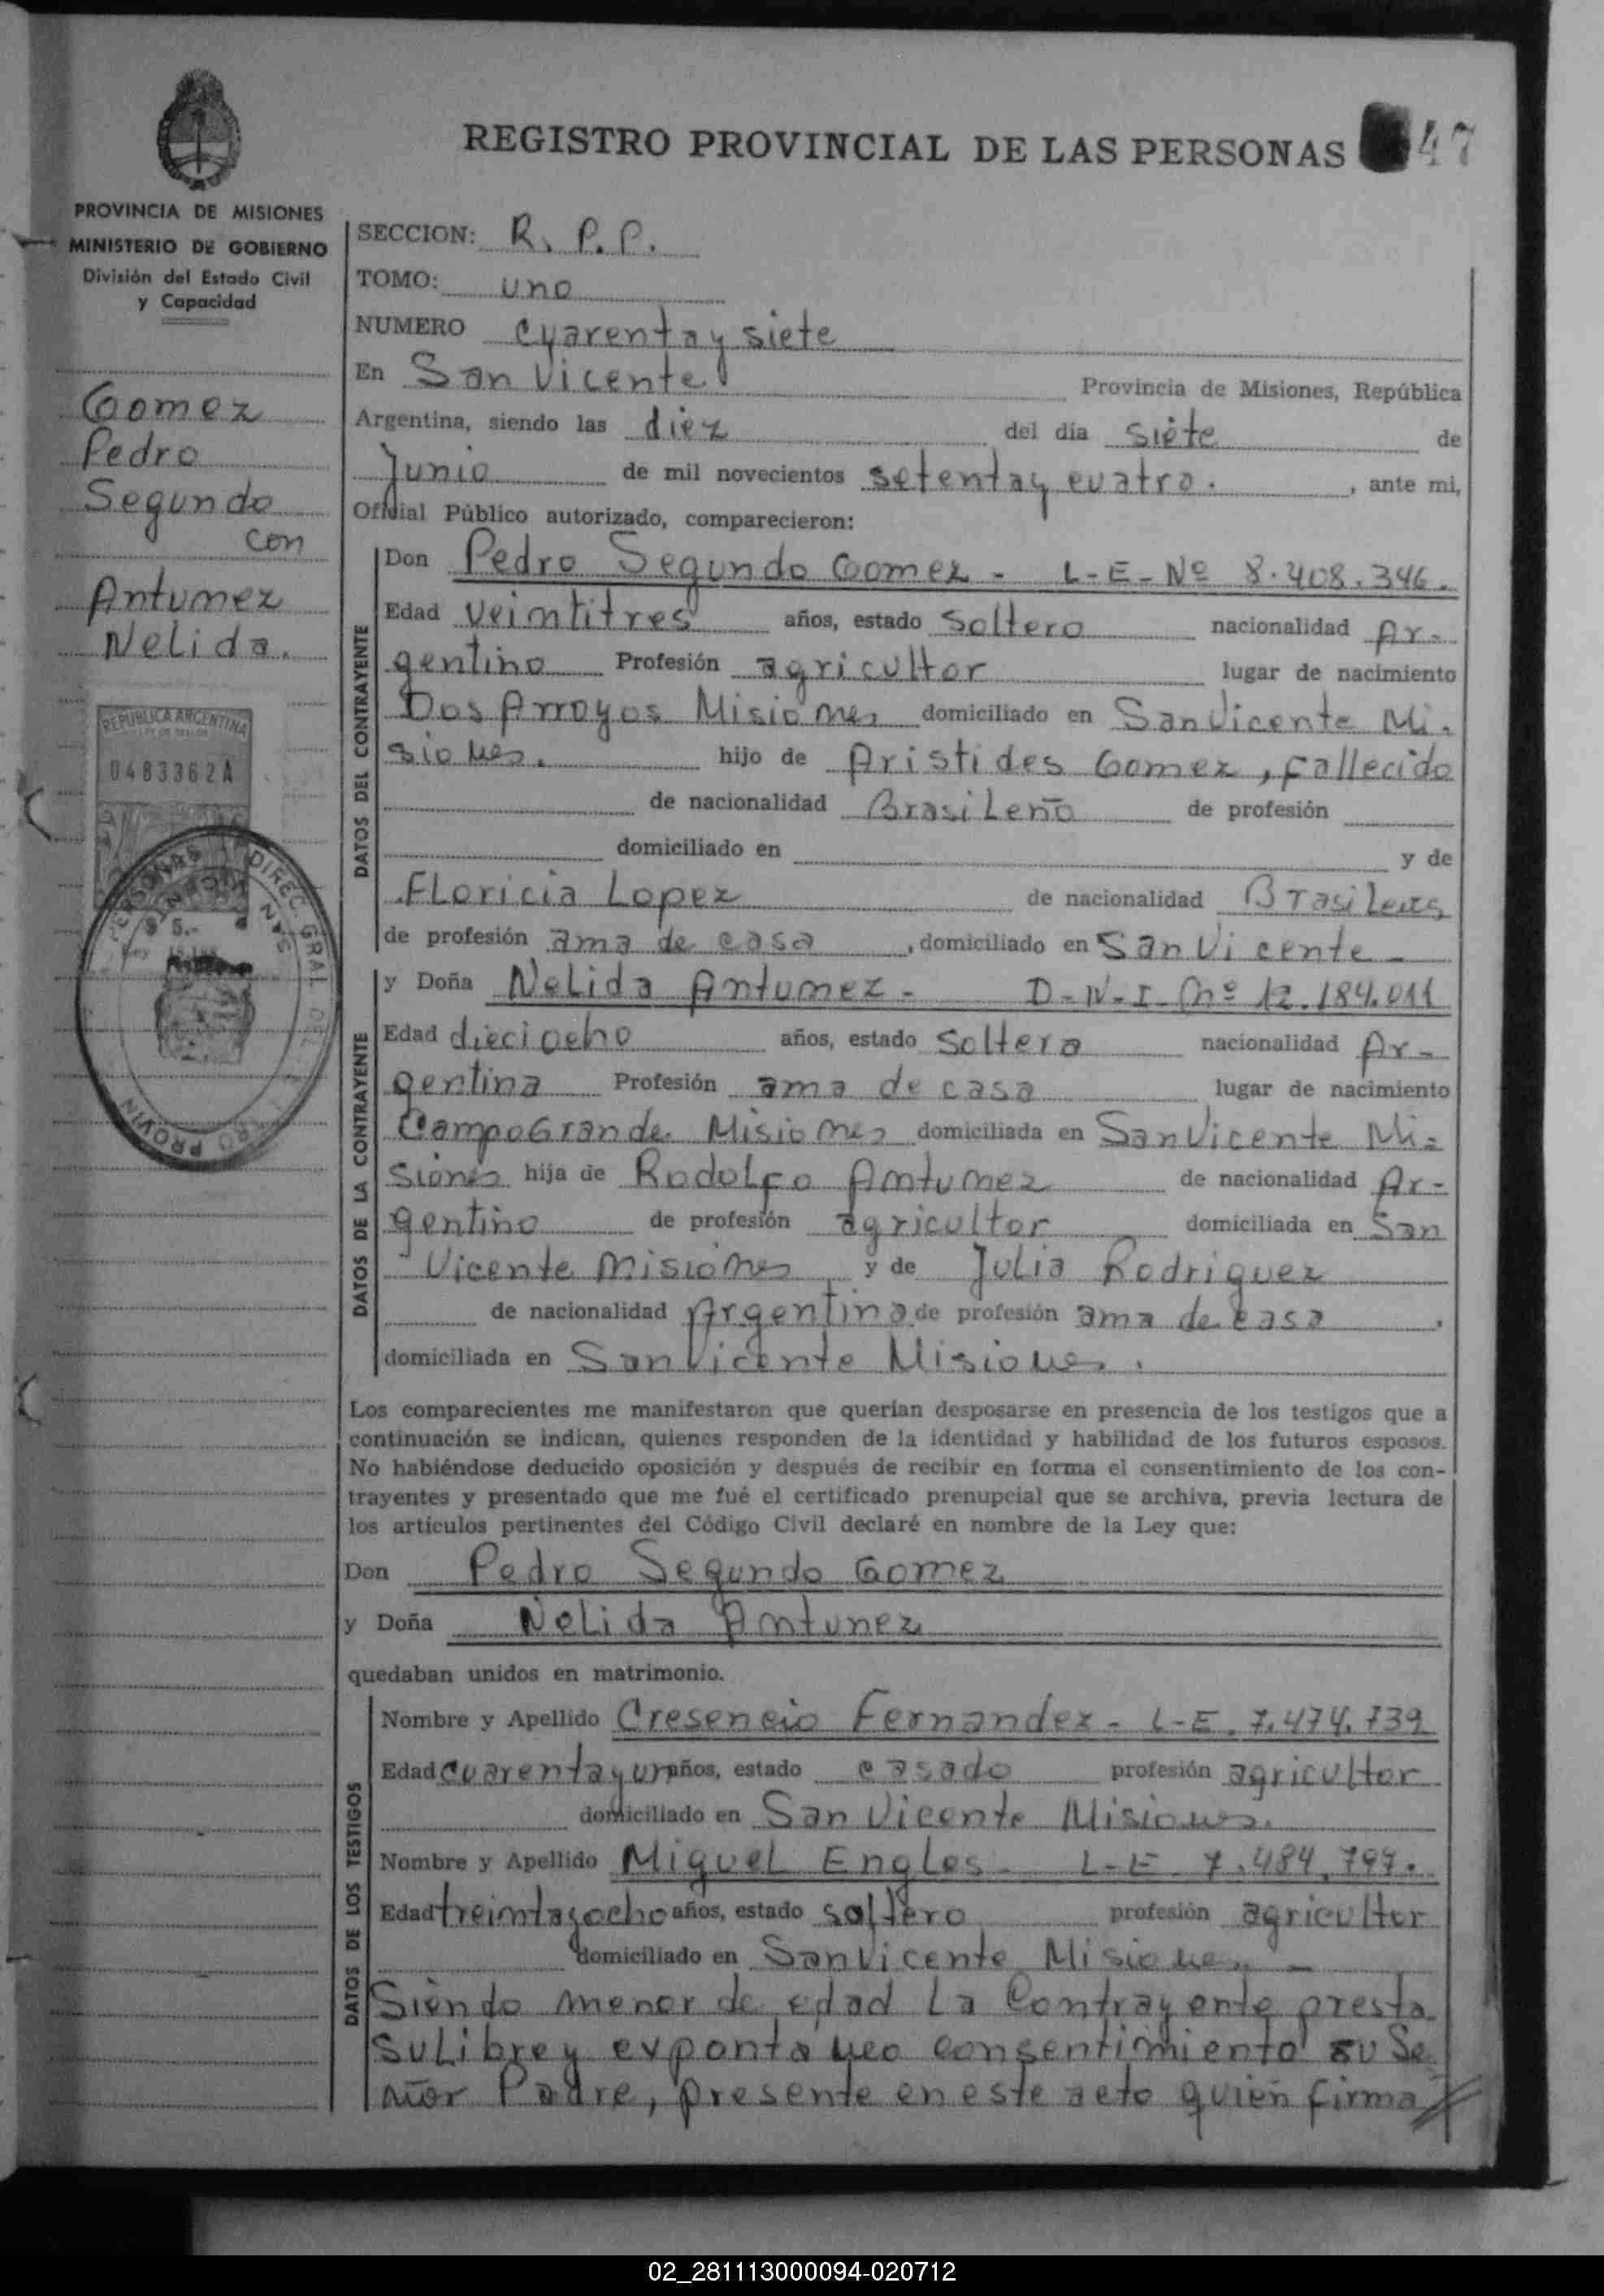 REGISTRO PROVINCIAL DE LAS PERSONAS 47
PROVINCIA DE MISIONES
MINISTERIO DE GOBIERNO
División del Estado Civil
y Capacidad
Gomez
Pedro
Segundo
con
Antunez
Nelida.
REPUBLICA ARGENTINA
0483362A
$ 5.-
SECCION: R. P. P.
TOMO: uno
NUMERO cuarenta y siete
En San Vicente Provincia de Misiones, República
Argentina, siendo las diez del día siete de
Junio de mil novecientos setenta y cuatro. , ante mi,
Oficial Público autorizado, comparecieron:
DATOS DEL CONTRAYENTE
Don Pedro Segundo Gomez - L-E-Nº 8.408.346.
Edad veintitres años, estado soltero nacionalidad Ar-
gentino Profesión agricultor lugar de nacimiento
Dos Arroyos Misiones domiciliado en San Vicente Mi.
siones. hijo de Aristides Gomez, fallecido
de nacionalidad Brasileño de profesión
domiciliado en y de
Floricia Lopez de nacionalidad Brasilera
de profesión ama de casa , domiciliado en San Vicente -
DATOS DE LA CONTRAYENTE
y Doña Nelida Antunez - D-N-I-Nº 12.184.011
Edad dieciocho años, estado soltera nacionalidad Ar-
gentina Profesión ama de casa lugar de nacimiento
Campo Grande Misiones domiciliada en San Vicente Mi=
siones hija de Rodolfo Antunez de nacionalidad Ar-
gentino de profesión agricultor domiciliada en San
Vicente Misiones y de Julia Rodriguez
de nacionalidad Argentina de profesión ama de casa ,
domiciliada en San Vicente Misiones.
Los comparecientes me manifestaron que querían desposarse en presencia de los testigos que a
continuación se indican, quienes responden de la identidad y habilidad de los futuros esposos.
No habiéndose deducido oposición y después de recibir en forma el consentimiento de los con-
trayentes y presentado que me fué el certificado prenupcial que se archiva, previa lectura de
los artículos pertinentes del Código Civil declaré en nombre de la Ley que:
Don Pedro Segundo Gomez
y Doña Nelida Antunez
quedaban unidos en matrimonio.
DATOS DE LOS TESTIGOS
Nombre y Apellido Cresencio Fernandez - L-E. 7.474.739
Edad cuarenta y un años, estado casado profesión agricultor
domiciliado en San Vicente Misiones.
Nombre y Apellido Miguel Engles - L-E 7.484.797.
Edad treinta y ocho años, estado soltero profesión agricultor
domiciliado en San Vicente Misiones -
Siendo menor de edad la Contrayente presta
su libre y expontáneo consentimiento su Se
ñor Padre, presente en este acto quien firma
02_281113000094-020712